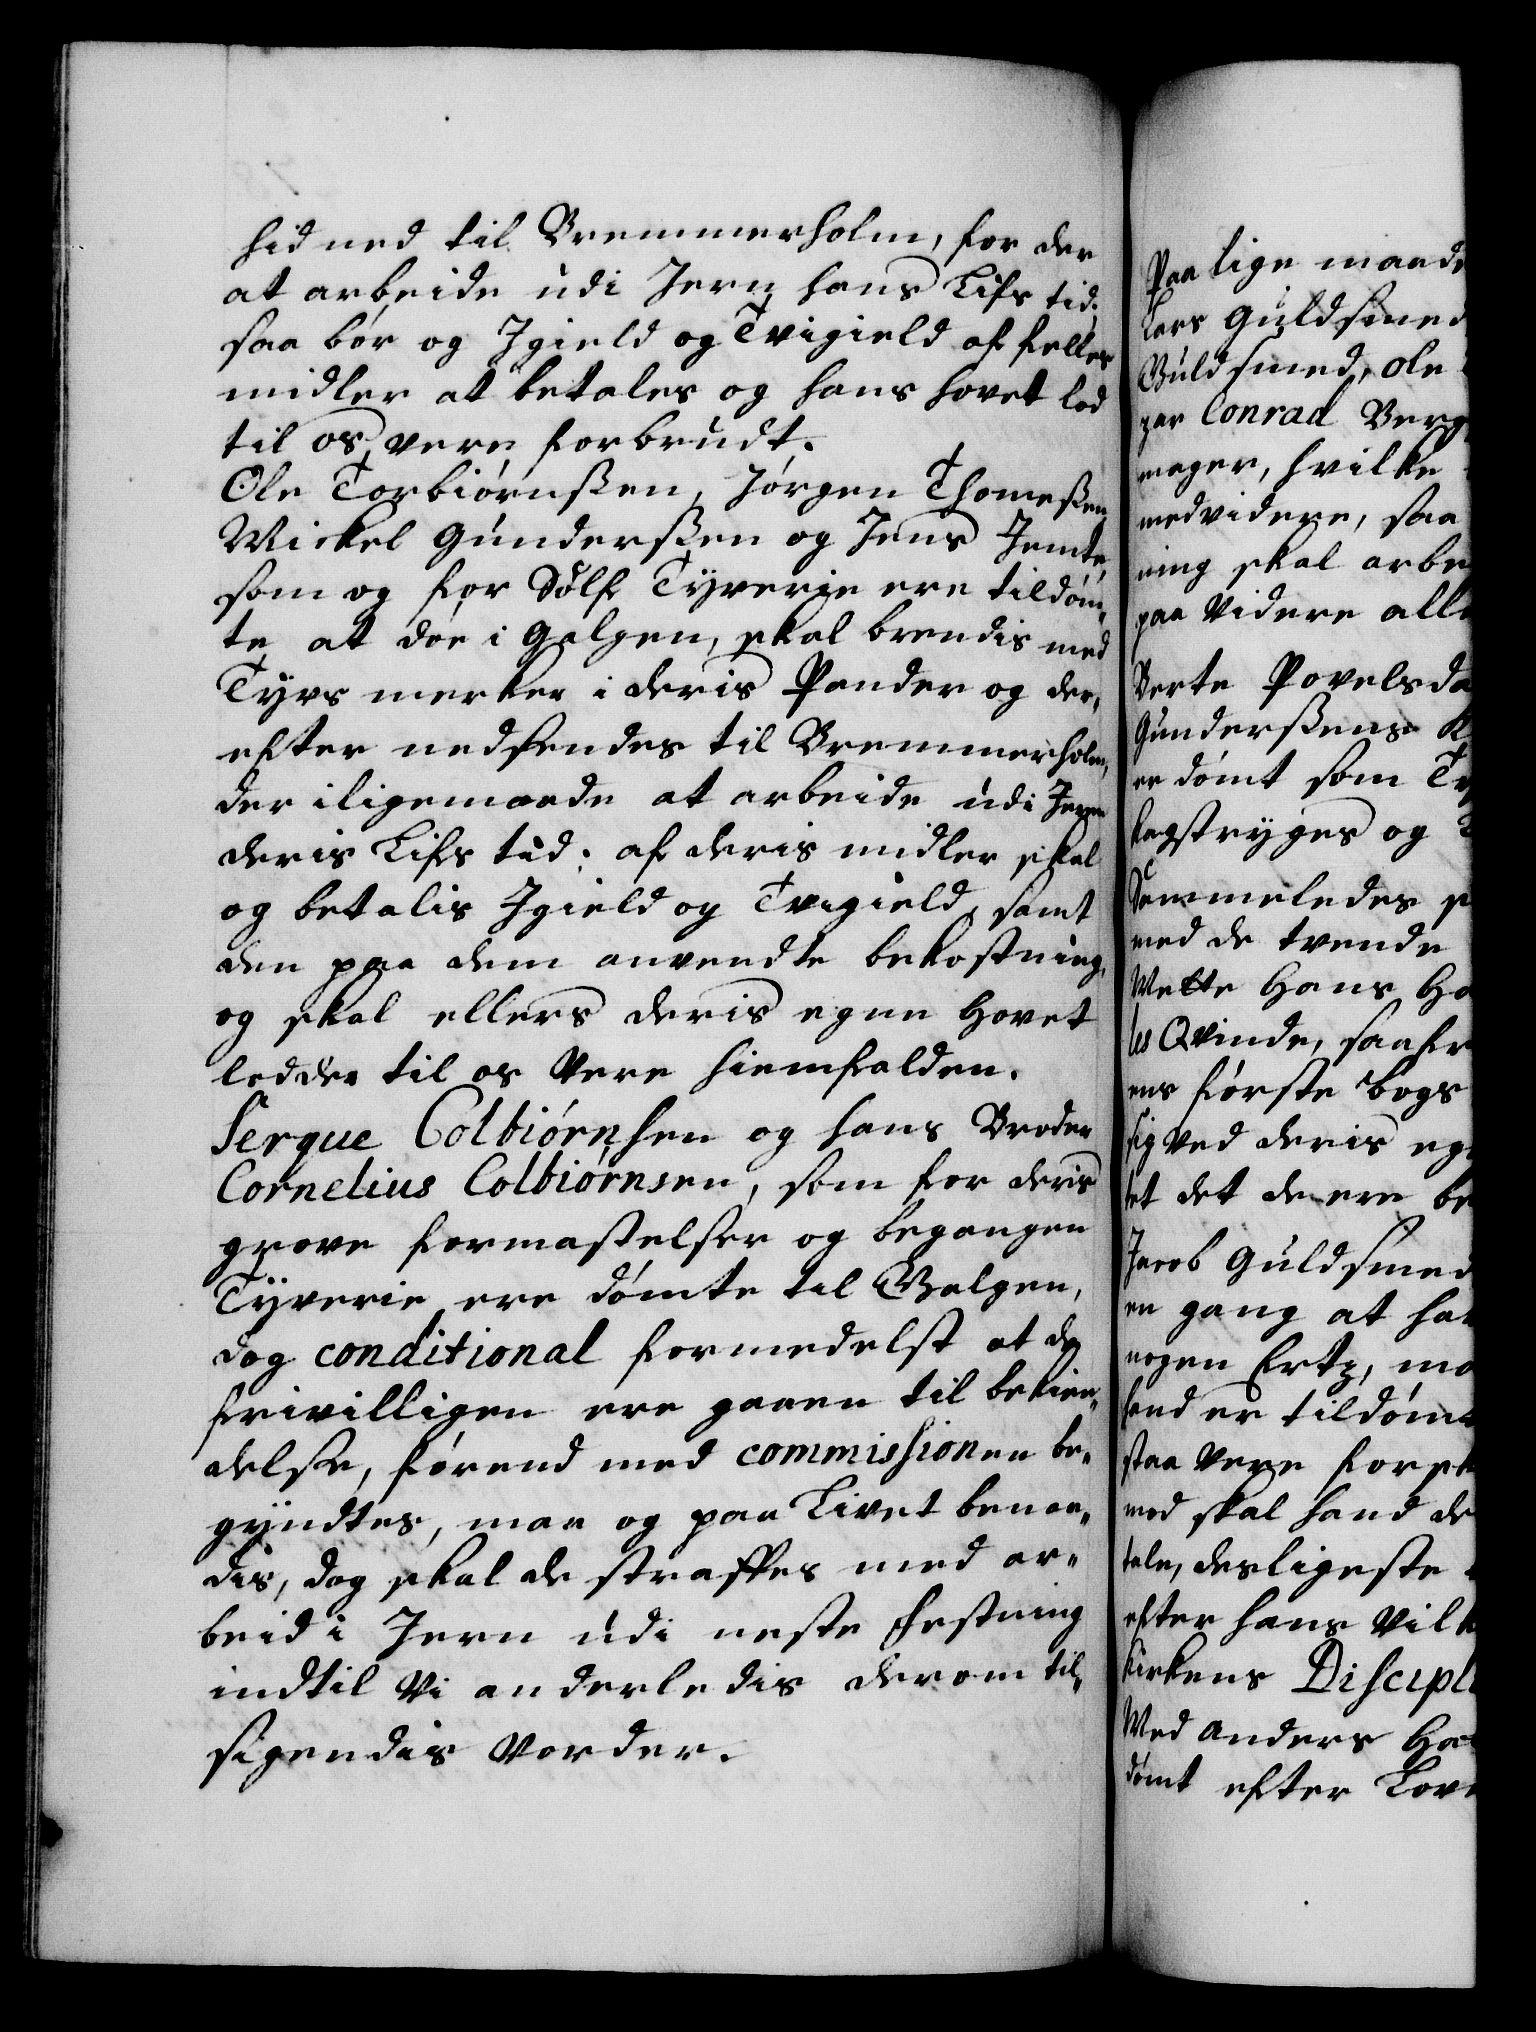 hid ned til Bremmerholm, for der
at arbeide udi Jern hans Lifs tid.
saa bør og Jgield og Tvigield af felles
midler at betales og hans hovet lod
til os vere forbrudt.
Ole Torbiørnßen, Jørgen Thomeßen
Mickel Gunderßen og Jens Jemte,
som og for Sølf Tyverie ere tildøm-
te at døe i Galgen, skal brendis med
Tyvs merker i deris Pander og der-
efter nedsendes til Bremmerholm,
der iligemaade at arbeide udi Jern
deris Lifs tid; af deris midler skal
og betalis Jgield og Tvigield, samt
den paa dem anvendte bekostning,
og skal ellers deris egne Hovet
lodder til os vere hiemfalden.
Serque Colbiørnsen og hans Broder
Cornelius Colbiørnsen, som for deris
grove formastelser og begangen
Tyverie ere dømte til Galgen,
dog conditional formedelst at de
frivilligen ere gaaen til bekien-
delse, førend med commissionen be-
gyndtes, maa og paa Livet benaa-
dis, dog skal de straffes med ar-
beid i Jern udi neste Festning
indtil Vi anderledis derom til-
sigendis vorder.
Paa lige maade
Lars Guldsmed
Guldsmed, Ole
per Conrad Berg
mager, hvilke
medvidere, saa
ning skal arbe
paa videre alle
Berte Povelsda
Gunderßens K
er dømt som Ty
kagstryges og
Sammeledes s
med de tvende
Mette Hans Ha
les Qvinde, saafr
ens første bogs
sig ved deris eg
tet det de ere be
Jacob Guldsmed
en gang at ha
nogen Ertz, ma
hand er tildømt
staa vere forsk
mod skal hand de
tale, desligeste
efter hans vilk
kirkens Discipli
Med Anders Ha
dømt efter Lov